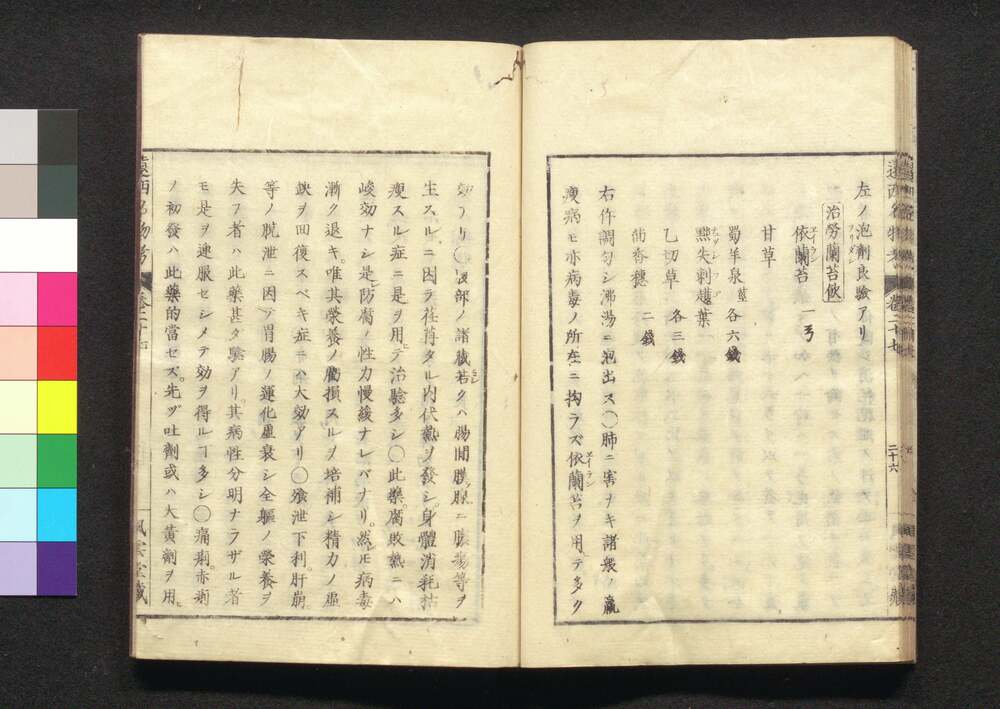 左ノ泡劑良驗アリ
治勞蘭苔飲
依蘭苔 一弓
エイラン
甘草
蜀羊泉 莖 各六錢
㸃失刺擾葉
乙切草 各三錢
茴香穗 二錢
右件調匀シ沸湯ニ泡出ス〇肺ニ害ヲキ諸般ノ羸
瘦病モ亦病毒ノ所在ニ拘ラズ依蘭苔ヲ用テ多ク
エイラン
二十六
效アリ〇腹部ノ諸臓若クハ腸間膜腺ニ膿瘍等ヲ
生スルニ因ラ荏苒タル内伏熱ヲ發シ身體消耗枯
瘦スル症ニ是ヲ用テ治驗多シ〇此藥腐敗熱ニハ
峻效ナシ是防腐ノ性力慢緩ナレバナリ然モ病毒
漸ク退キ唯其榮養ノ虧損スルヲ培補シ精力ノ虛
缺ヲ回復スベキ症ニハ大效アリ〇飱泄下利肝崩
等ノ脱泄ニ因テ胃腸ノ運化虛衰シ全軀ノ榮養ヲ
失フ者ハ此藥甚ダ驗アリ其病性分明ナラザル者
モ是ヲ連服セシメテ效ヲ得ルヿ多シ〇痛痢赤痢
ノ初發ハ此藥的當セズ先ヅ吐劑或ハ大黄劑ヲ用
遠西名物考
卷二十七
風雲堂藏